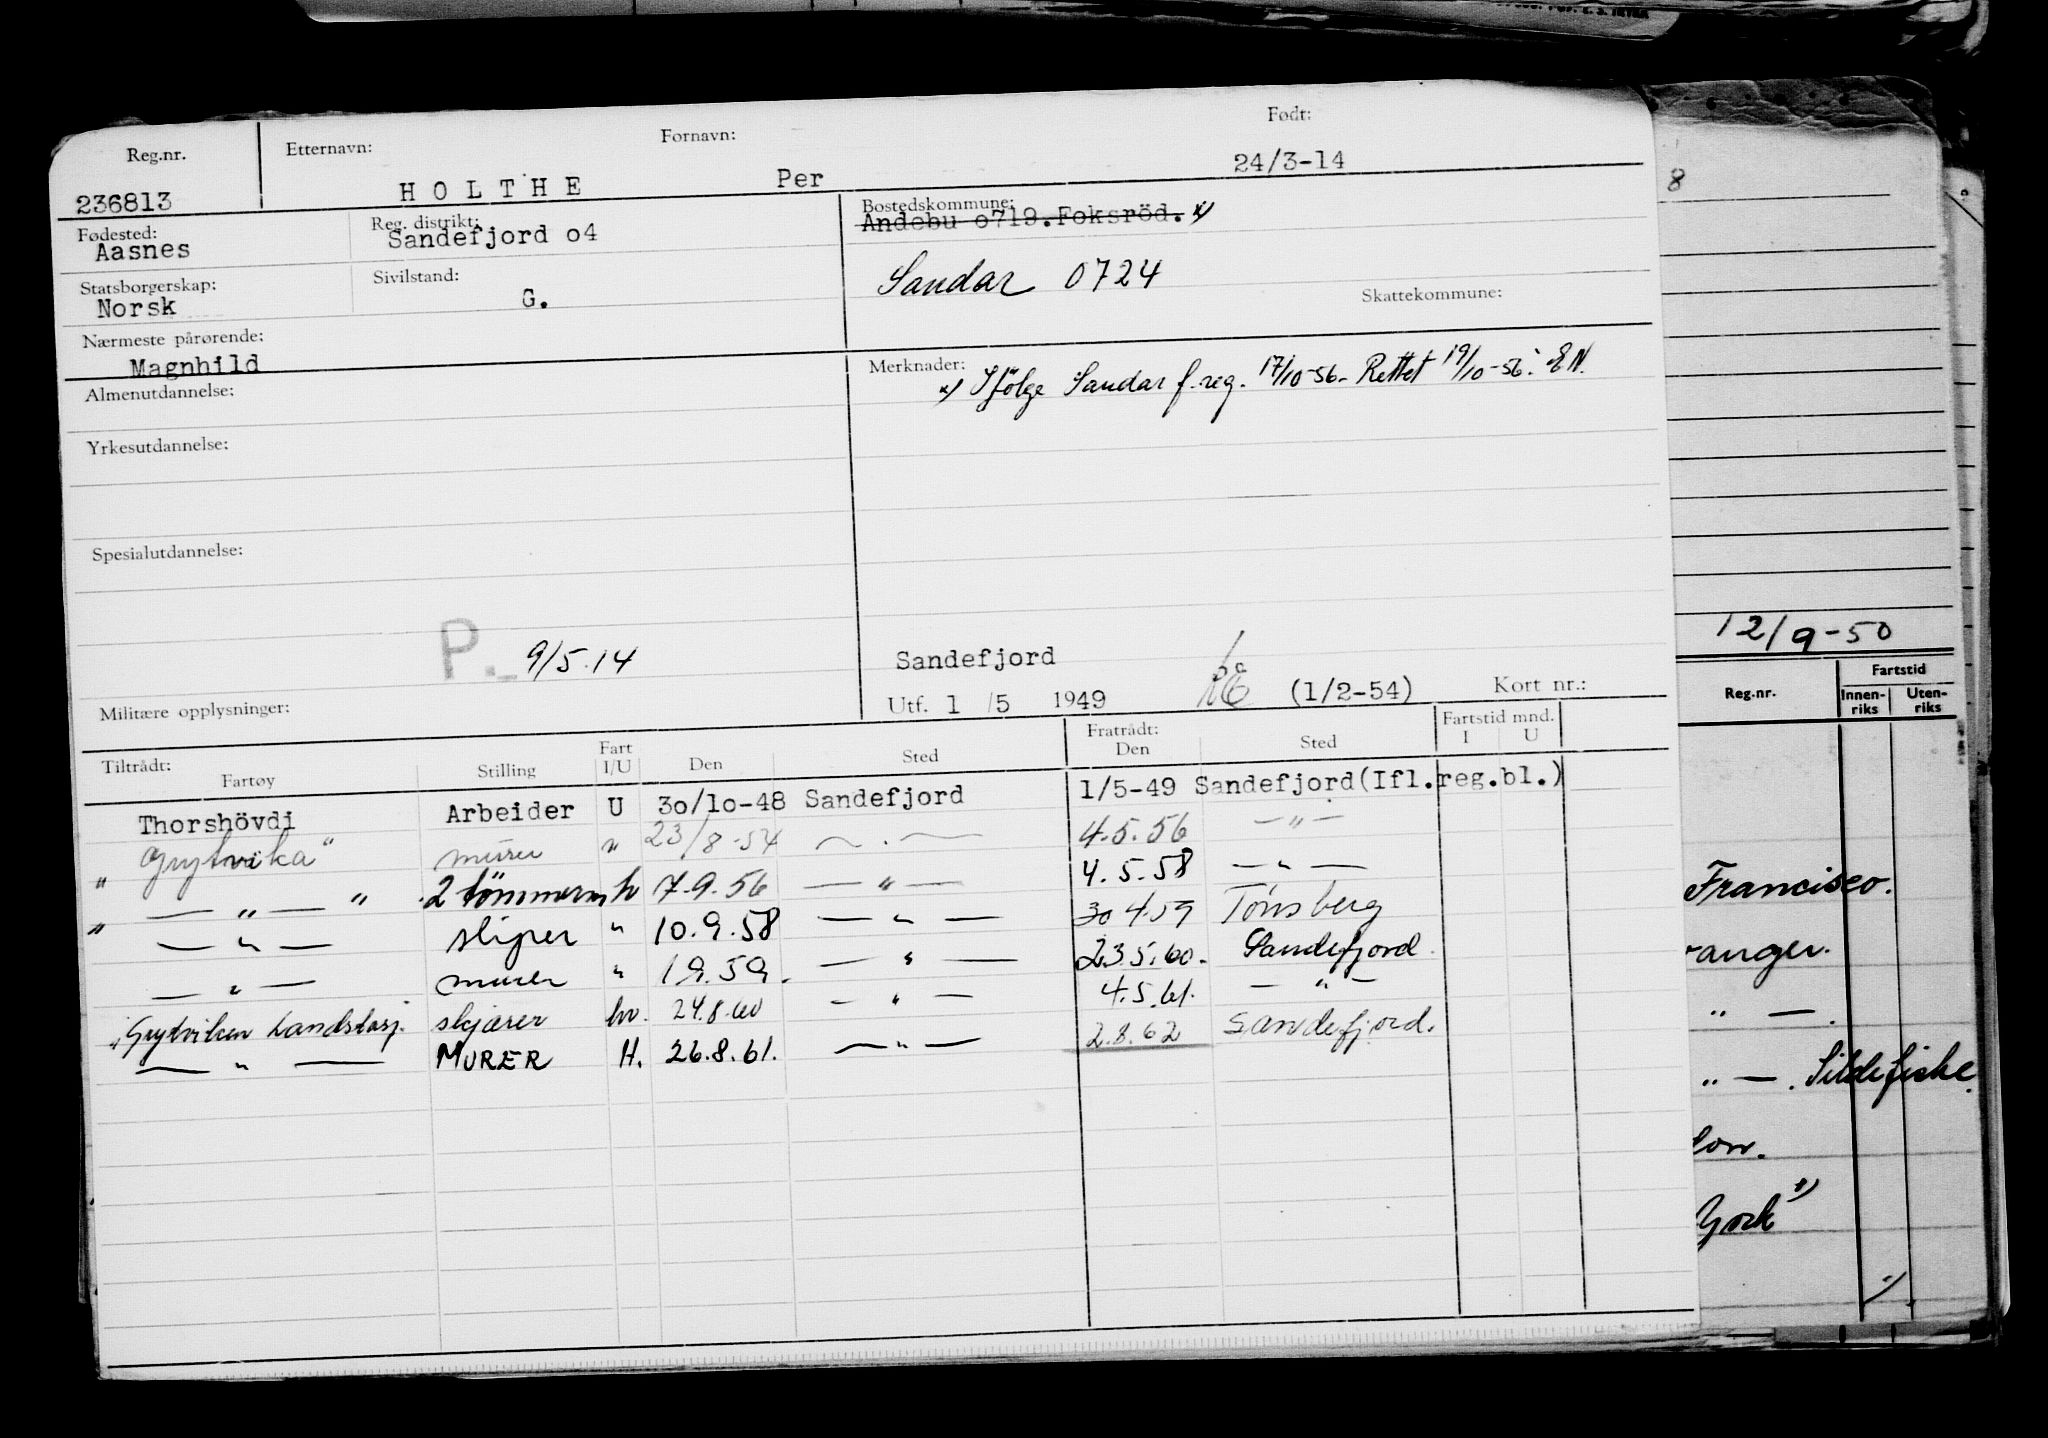 Reg.nr. Etternavn: Fornavn: Født:
236813 HOLTHE Per 24/3-14
Fødested: Reg. distrikt: Bostedskommune:
Aasnes Sandefjord o4 Andebu o719.Foksröd. x/
Statsborgerskap: Sivilstand: Sandar 0724
Norsk G. Skattekommune:
Nærmeste pårørende:
Magnhild Merknader:
x/ Ifölge Sandar f.reg. 17/10-56. Rettet 19/10-56. EN.
Almenutdannelse:
Yrkesutdannelse:
Spesialutdannelse:
P. 9/5.14
Sandefjord
Militære opplysninger: Utf. 1 /5 1949 (1/2-54) Kort nr.:
Tiltrådt: Fratrådt: Fartstid mnd.
Fartøy Stilling Fart I/U Den Sted Den Sted I U
Thorshövdi Arbeider U 3o/1o-48 Sandefjord 1/5-49 Sandefjord(Ifl.reg.bl.)
"Grytvika" murer " 23/8-54 — " — 4.5.56 — " —
" — " — " 2 tömmerm hv 7.9.56 — " — 4.5.58 — " —
" — " — sliper " 10.9.58 — " — 30 4.59 Tönsberg
— " — murer " 1.9.59. — " — 23.5.60. Sandefjord.
"Grytviken Landstasj. skjærer hv. 24.8.60 — " — 4.5.61. — " —
— " — MURER H. 26.8.61. — " — 2.8.62 Sandefjord.
8
12/9-50
Reg.nr. Fartstid
Innen-riks Uten-riks
Francisco.
anger.
" — .
" — . Sildefiske.
York"